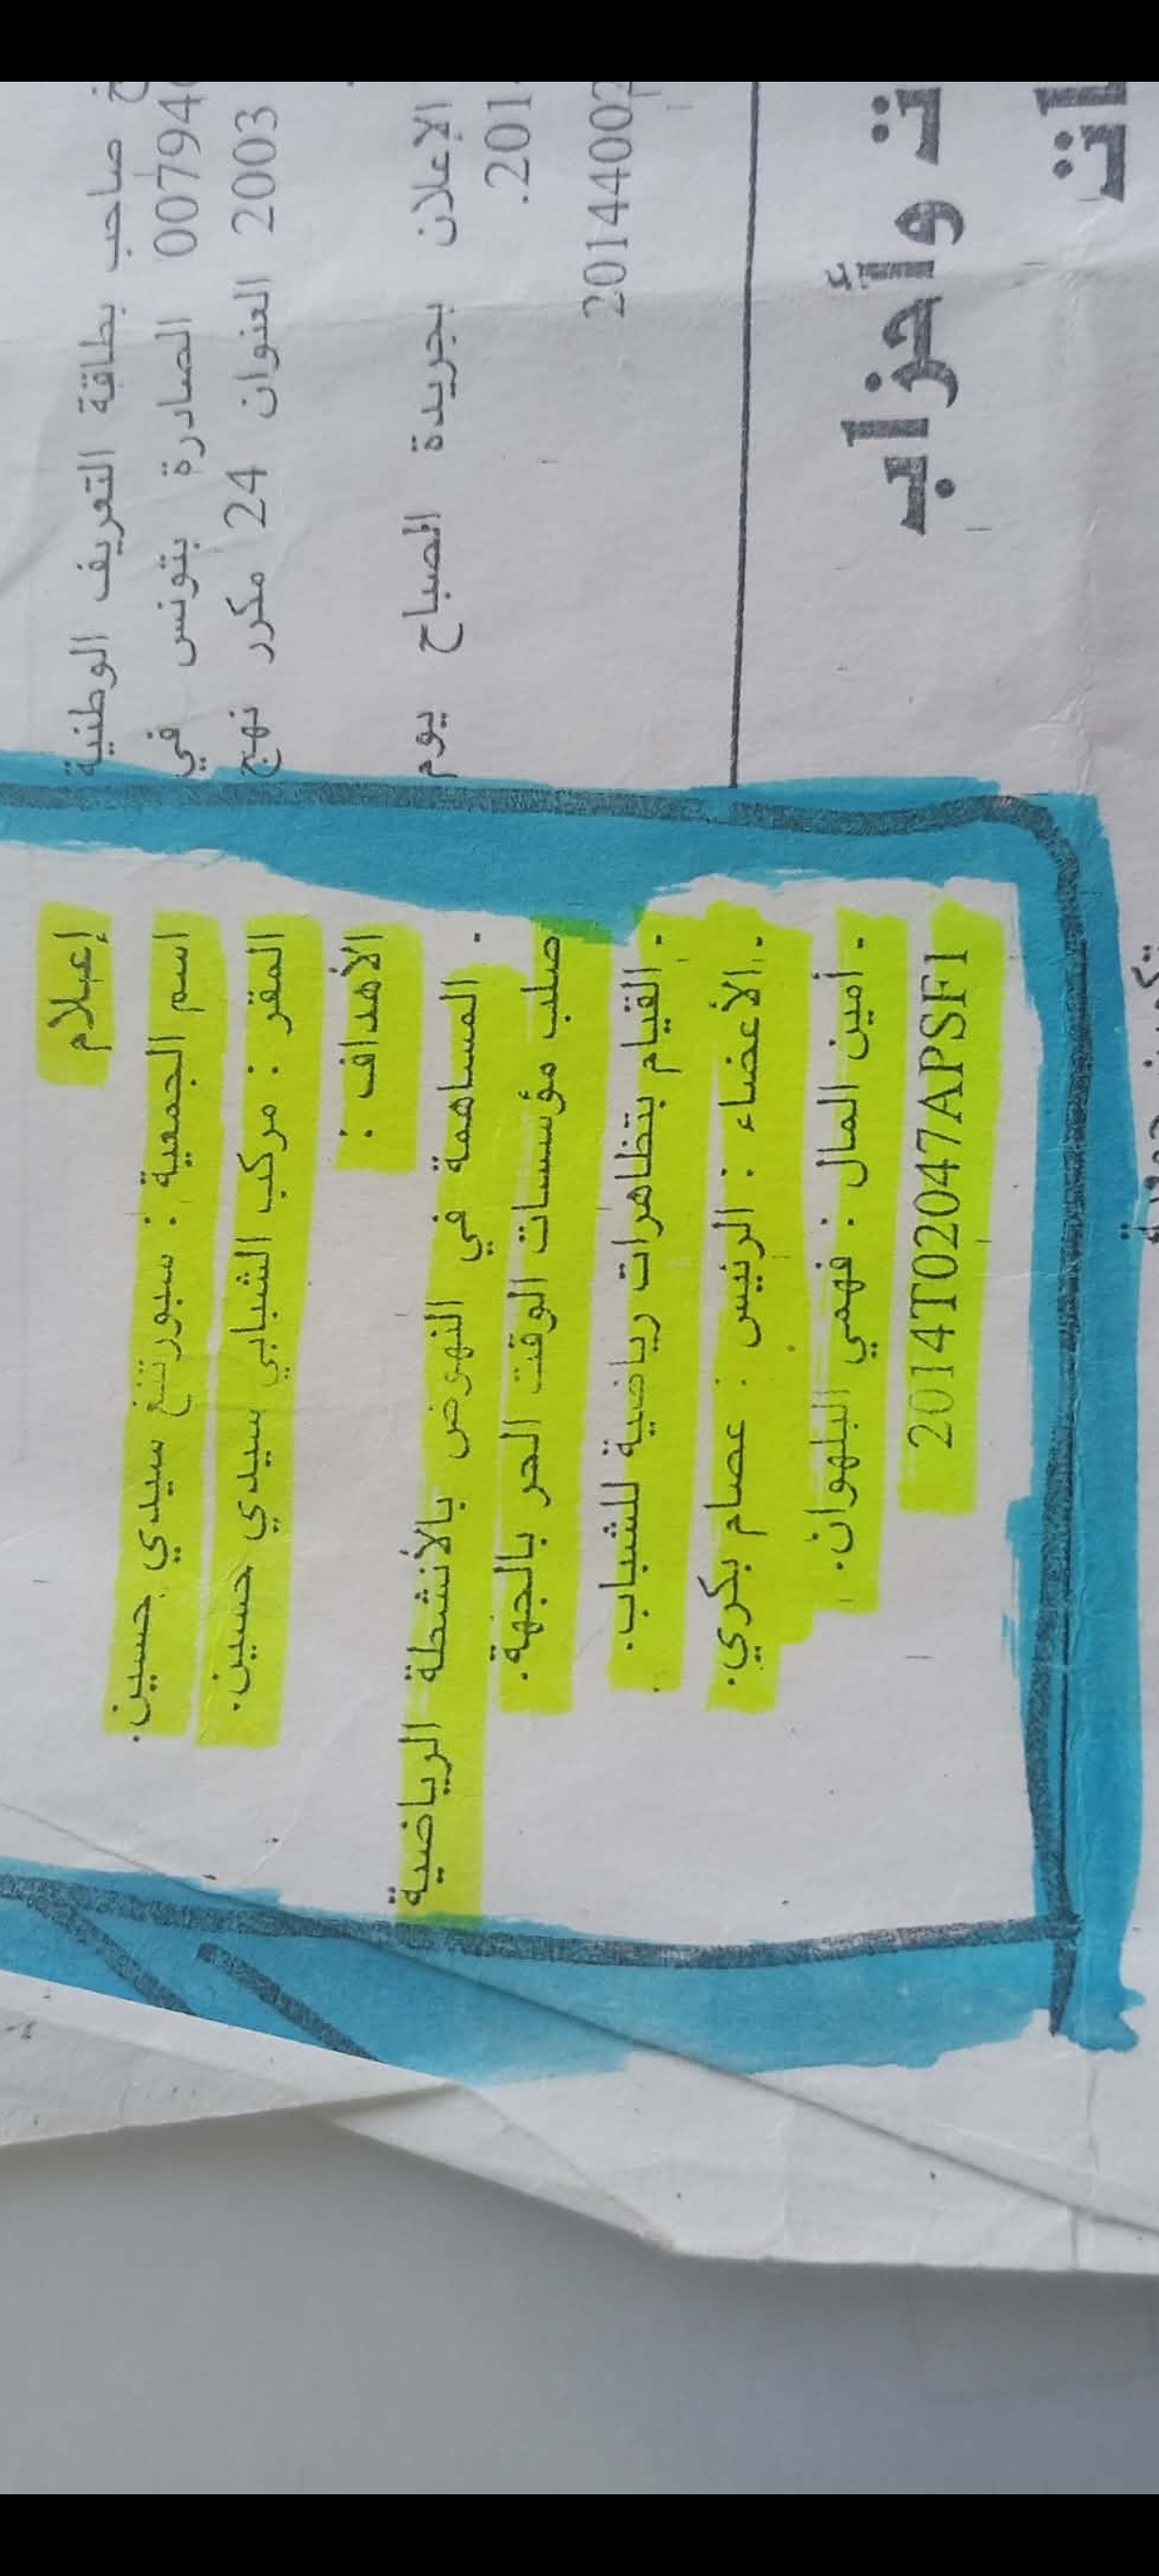 صاحب بطاقة التعريف الوطنية
00794 الصادرة بتونس في
2003 العنوان 24 مكرر نهج
الإعلان بجريدة الصباح يوم
201.
20144002
ت وأحزاب
ات
إعلام
اسم الجمعية : سبورتنغ سيدي حسين.
المقر : مركب الشبابي سيدي حسين.
الأهداف :
- المساهمة في النهوض بالأنشطة الرياضية
صلب مؤسسات الوقت الحر بالجهة.
- القيام بتظاهرات رياضية للشباب.
- الأعضاء : الرئيس : عصام بكري.
- أمين المال : فهمي البلهوان.
2014T02047APSF1